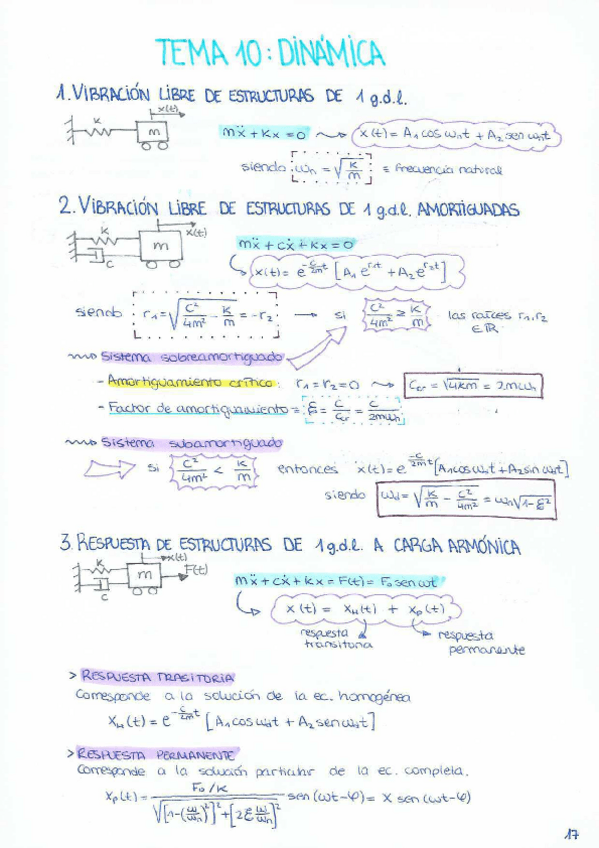 TEMA 10: DINÁMICA
1. VIBRACIÓN LIBRE DE ESTRUCTURAS DE 1 g.d.l.
x(t)
K
m
mẍ + Kx = 0 ⟿ x(t) = A₁ cos ωₙt + A₂ sen ωₙt
siendo ωₙ = √(K/m) ≡ frecuencia natural
2. VIBRACIÓN LIBRE DE ESTRUCTURAS DE 1 g.d.l. AMORTIGUADAS
K
m
x(t)
C
mẍ + cẋ + Kx = 0
x(t) = e^(-c/2m t) [A₁ e^(r₁t) + A₂ e^(r₂t)]
siendo r₁ = √(C²/4m² - K/m) = -r₂ → si C²/4m² ≥ K/m las raíces r₁, r₂
∈ ℝ
Sistema sobreamortiguado
- Amortiguamiento crítico: r₁ = r₂ = 0 ⟿ Ccr = √4Km = 2mωₙ
- Factor de amortiguamiento = ξ = C/Ccr = C/2mωₙ
Sistema subamortiguado
si C²/4m² < K/m entonces x(t) = e^(-c/2m t) [A₁ cos ωdt + A₂ sin ωdt]
siendo ωd = √(K/m - C²/4m²) = ωₙ√(1-ξ²)
3. RESPUESTA DE ESTRUCTURAS DE 1 g.d.l. A CARGA ARMÓNICA
x(t)
K
m
F(t)
C
mẍ + cẋ + Kx = F(t) = F₀ sen ωt
x(t) = x_H(t) + x_p(t)
respuesta transitoria
respuesta permanente
> RESPUESTA TRASITORIA
Corresponde a la solución de la ec. homogénea
x_H(t) = e^(-c/2m t) [A₁ cos ωdt + A₂ sen ωdt]
> RESPUESTA PERMANENTE
Corresponde a la solución particular de la ec. completa.
x_p(t) = (F₀/K) / √([1-(ω/ωₙ)²]² + [2ξ ω/ωₙ]²) sen (ωt-φ) = X sen (ωt-φ)
17